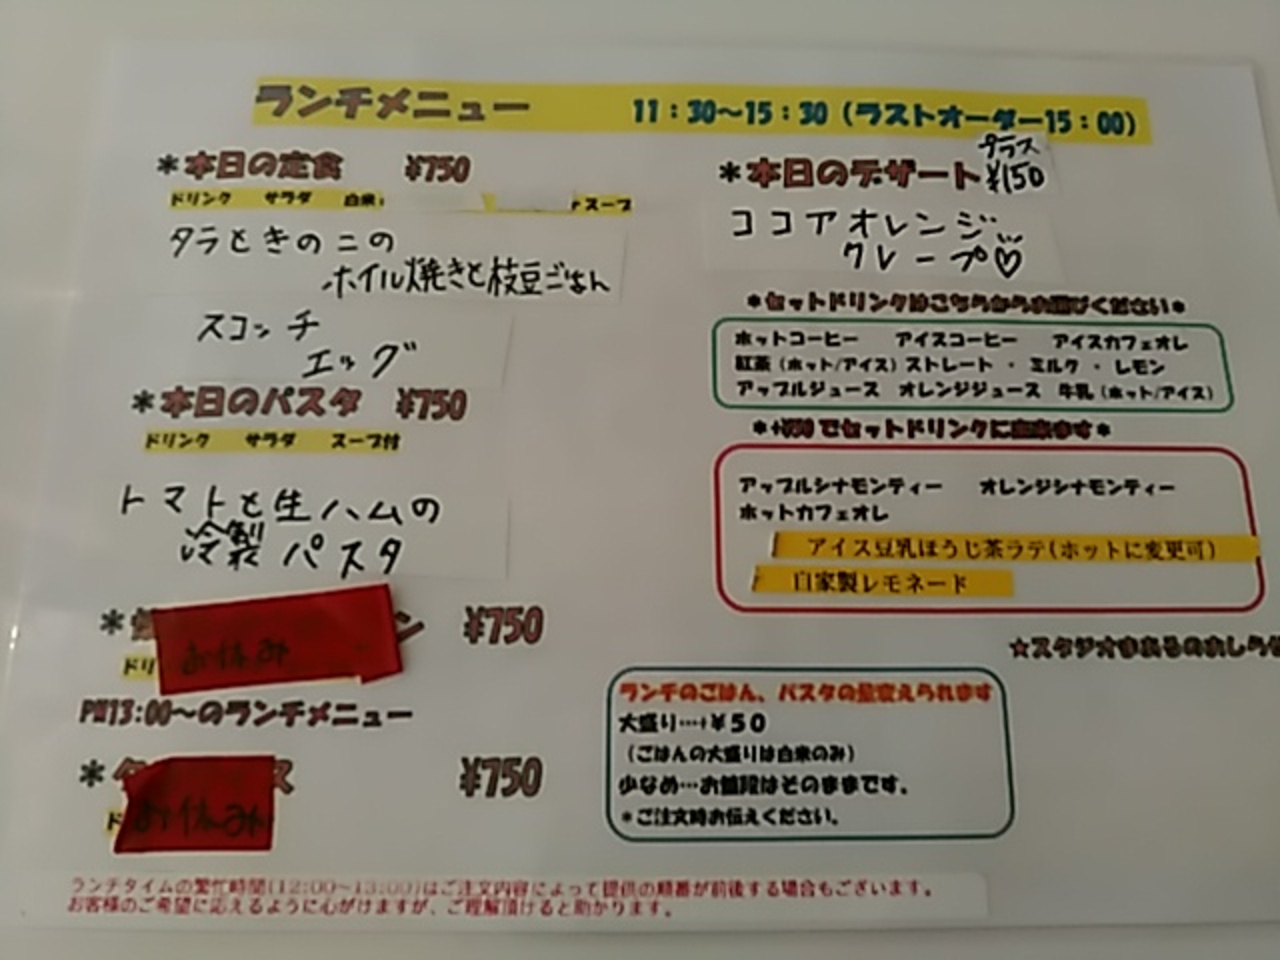 ランチメニュー 11：30〜15：30（ラストオーダー15：00）
＊本日の定食 ¥750
ドリンク サラダ 白米 スープ
タラときのこの
ホイル焼きと枝豆ごはん
スコッチ
エッグ
＊本日のパスタ ¥750
ドリンク サラダ スープ付
トマトと生ハムの
冷製パスタ
＊ ン ¥750
ドリ お休み
PM13:00〜のランチメニュー
＊ ス ¥750
ド お休み
プラス
＊本日のデザート ¥150
ココアオレンジ
クレープ♡
＊セットドリンクはこちらからお選びください＊
ホットコーヒー アイスコーヒー アイスカフェオレ
紅茶（ホット/アイス）ストレート・ミルク・レモン
アップルジュース オレンジジュース 牛乳（ホット/アイス）
でセットドリンクに出来ます＊
アップルシナモンティー オレンジシナモンティー
ホットカフェオレ
アイス豆乳ほうじ茶ラテ(ホットに変更可)
自家製レモネード
☆スタジオまあるのおしらせ
ランチのごはん、パスタの量変えられます
大盛り…+¥50
（ごはんの大盛りは白米のみ）
少なめ…お値段はそのままです。
＊ご注文時お伝えください。
ランチタイムの繁忙時間(12:00〜13:00)はご注文内容によって提供の順番が前後する場合もございます。
お客様のご希望に応えるように心がけますが、ご理解頂けると助かります。